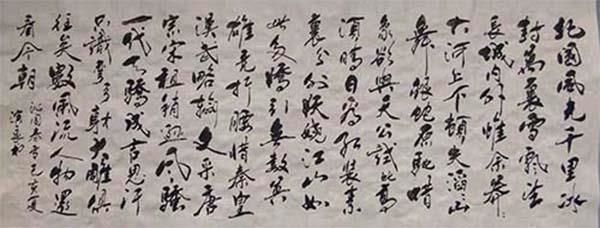 北國風光千里冰
封萬里雪飄望
長城内外惟余莽々
大河上下頓失滔々山
舞銀蛇原馳蠟
象欲與天公試比高
須晴日看紅裝素
裹分外妖嬈江山如
此多嬌引無數英
雄競折腰惜秦皇
漢武略輸文采唐
宗宋祖稍遜風騷
一代天驕成吉思汗
只識彎弓射大雕俱
往矣數風流人物還
看今朝
沁園春雪己亥夏